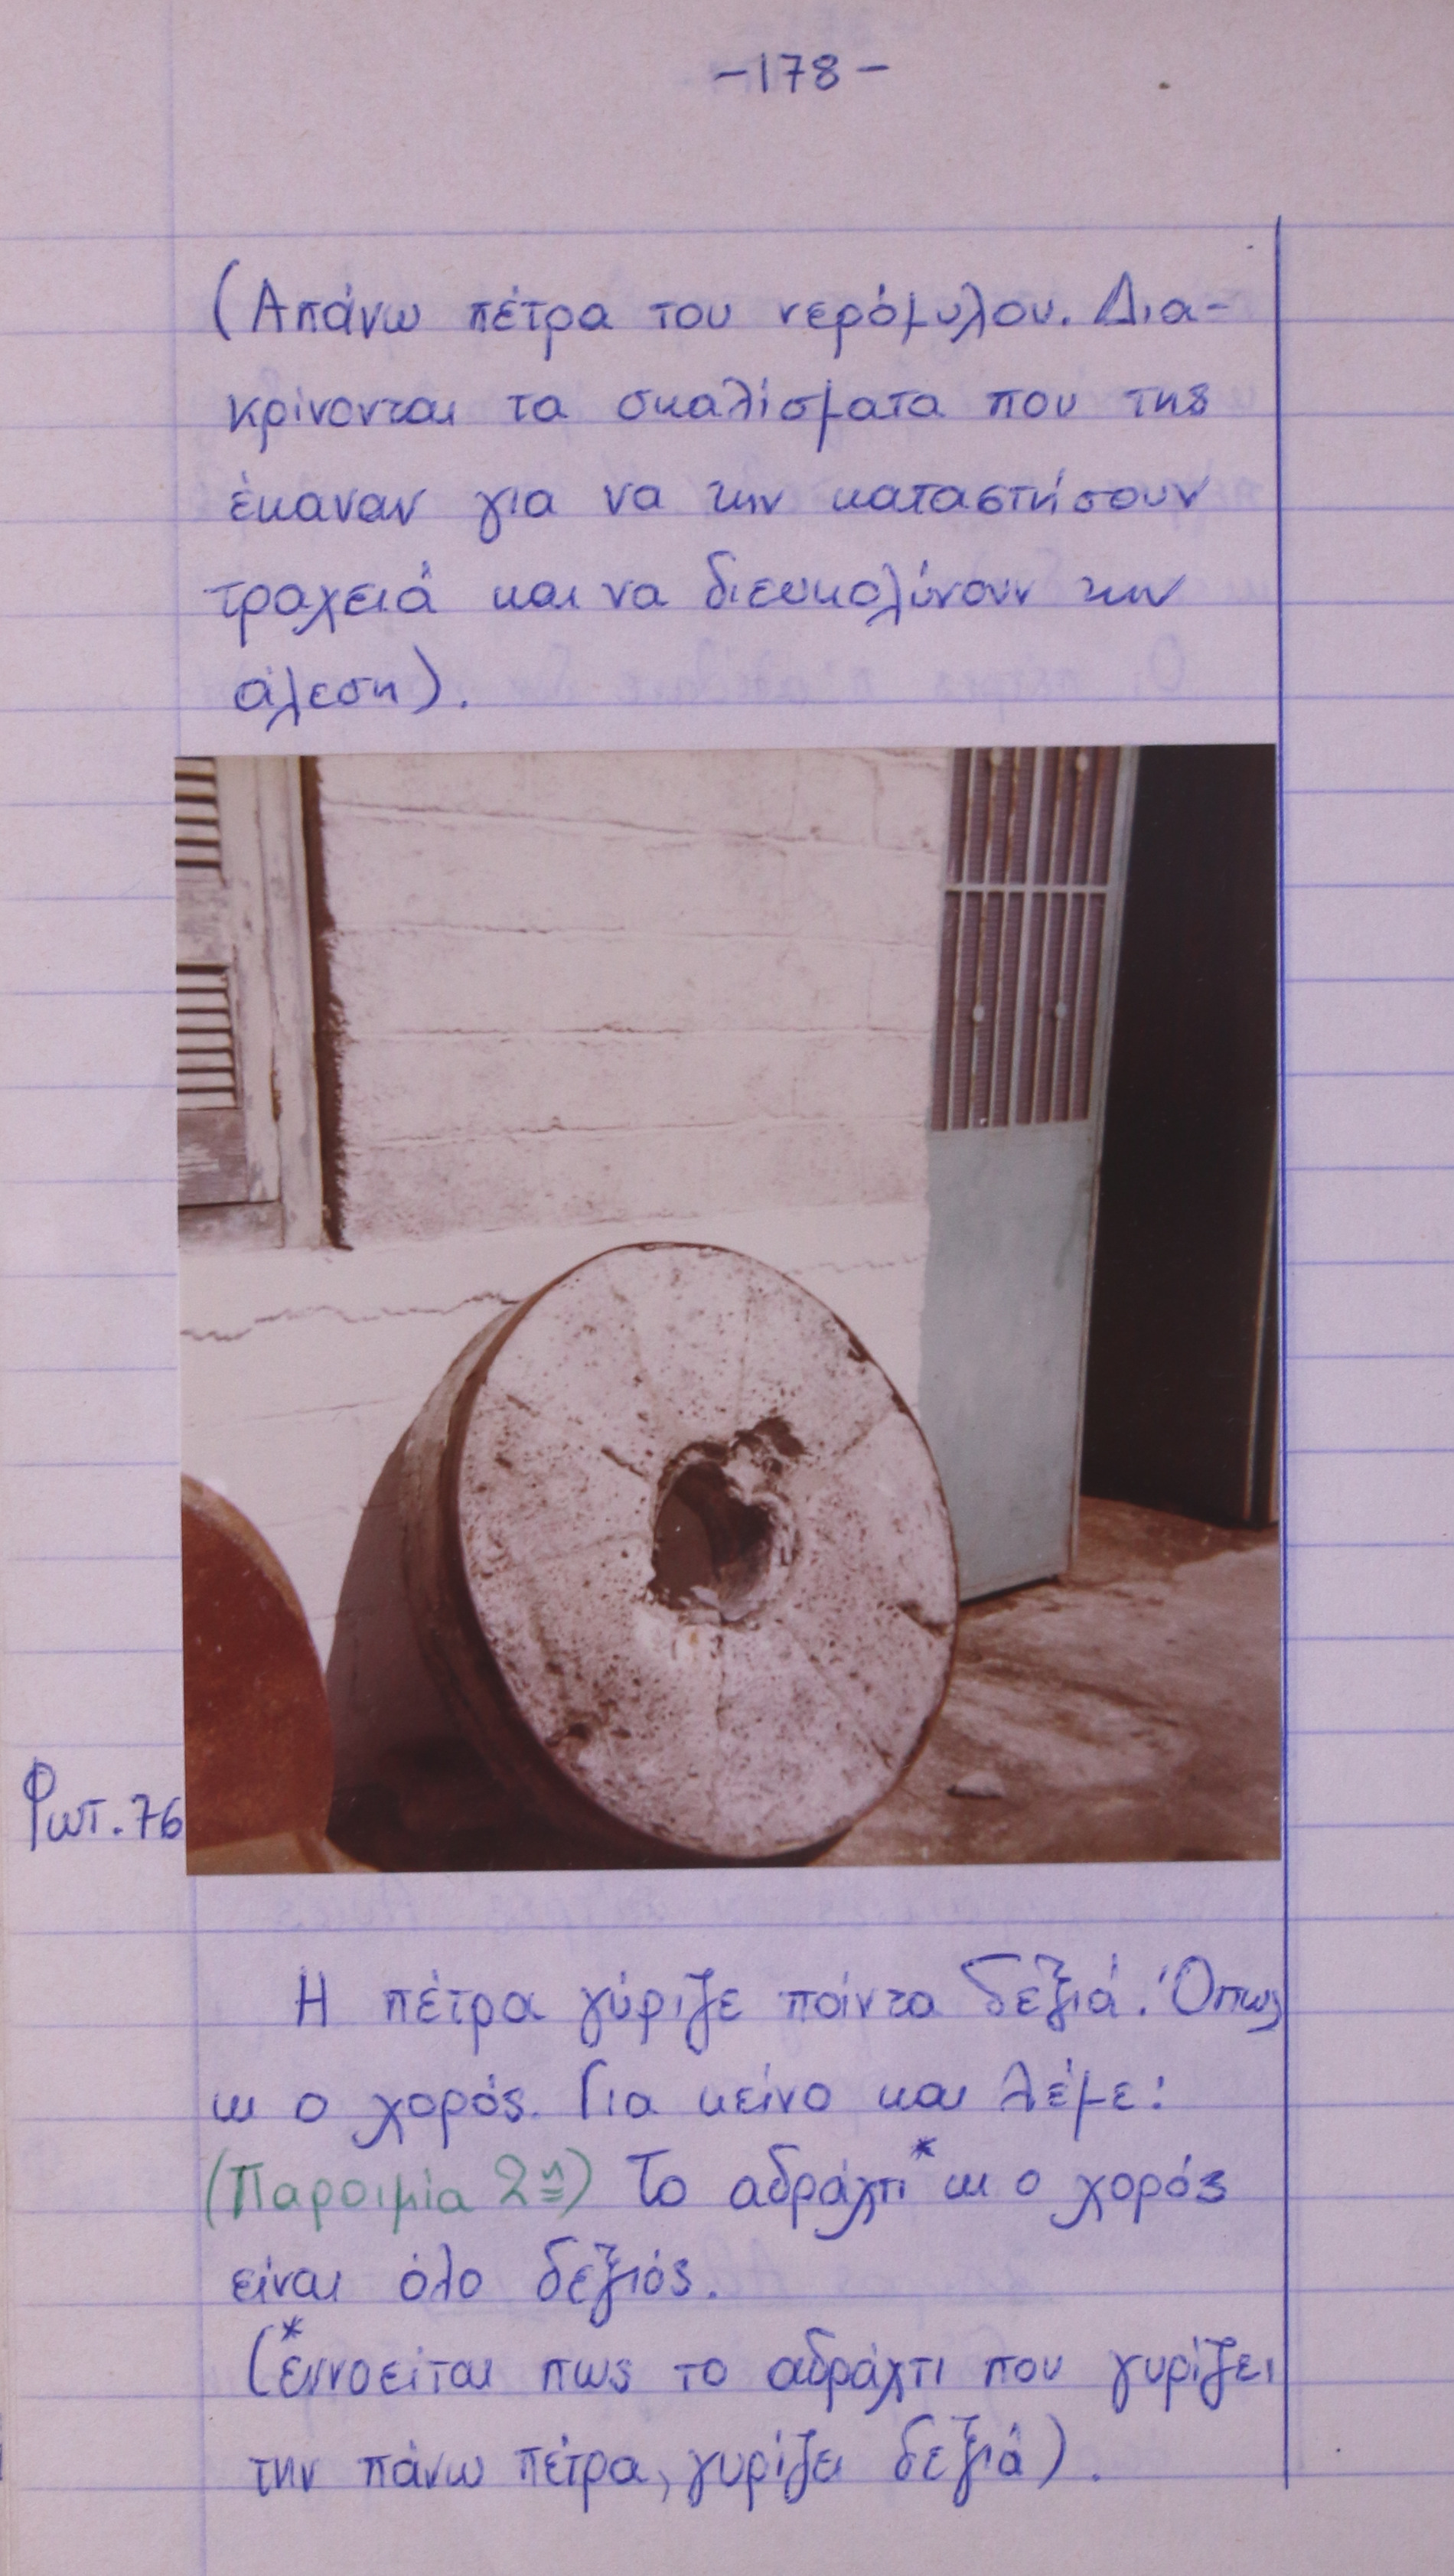 -178-
(Απάνω πέτρα του νερόμυλου. Δια-
κρίνονται τα σκαλίσματα που της
έκαναν για να την καταστήσουν
τραχειά και να διευκολύνουν την
άλεση).
Φωτ. 76
Η πέτρα γύριζε πάντα δεξιά. Όπως
κι ο χορός. Για κείνο και λέμε:
(Παροιμία 2η) Το αδράχτι* κι ο χορός
είναι όλο δεξιός.
(*εννοείται πως το αδράχτι που γυρίζει
την πάνω πέτρα, γυρίζει δεξιά).